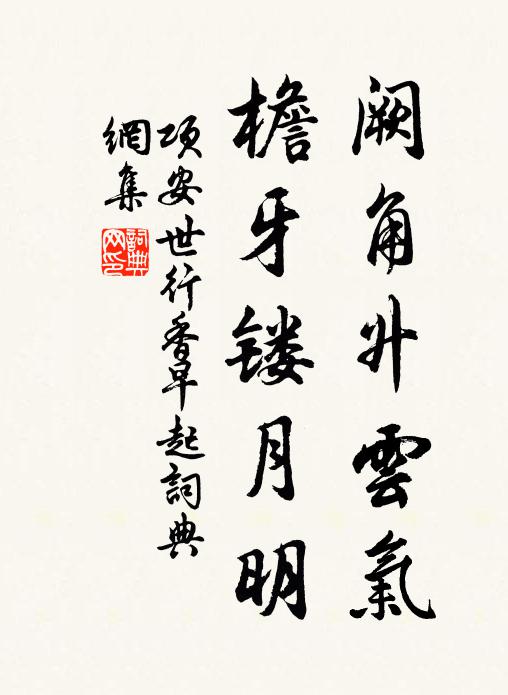 阙角升雲氣
檐牙镂月明
项安世行香早起詞典
網集
詞典
网印